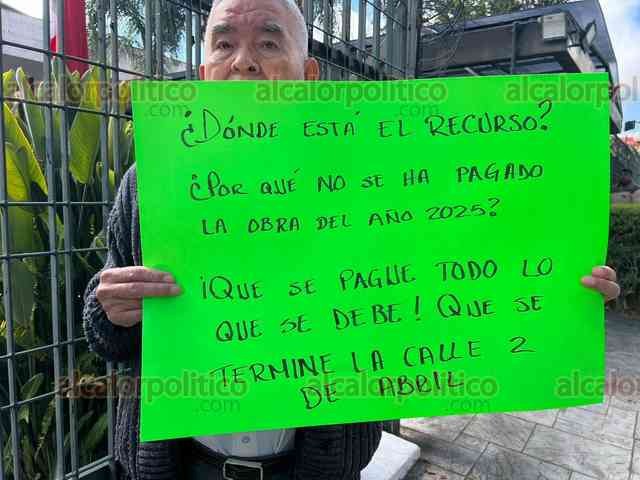 alcalorpolitico alcalorpolitico alcalorpolitico
.com .com
¿DÓNDE ESTÁ EL RECURSO?
¿POR QUÉ NO SE HA PAGADO
LA OBRA DEL AÑO 2025?
¡QUE SE PAGUE TODO LO
QUE SE DEBE! QUE SE
TERMINE LA CALLE 2
DE ABRIL
alcalorpolitico alcalorpolitico alcalorpolitico
.com .com